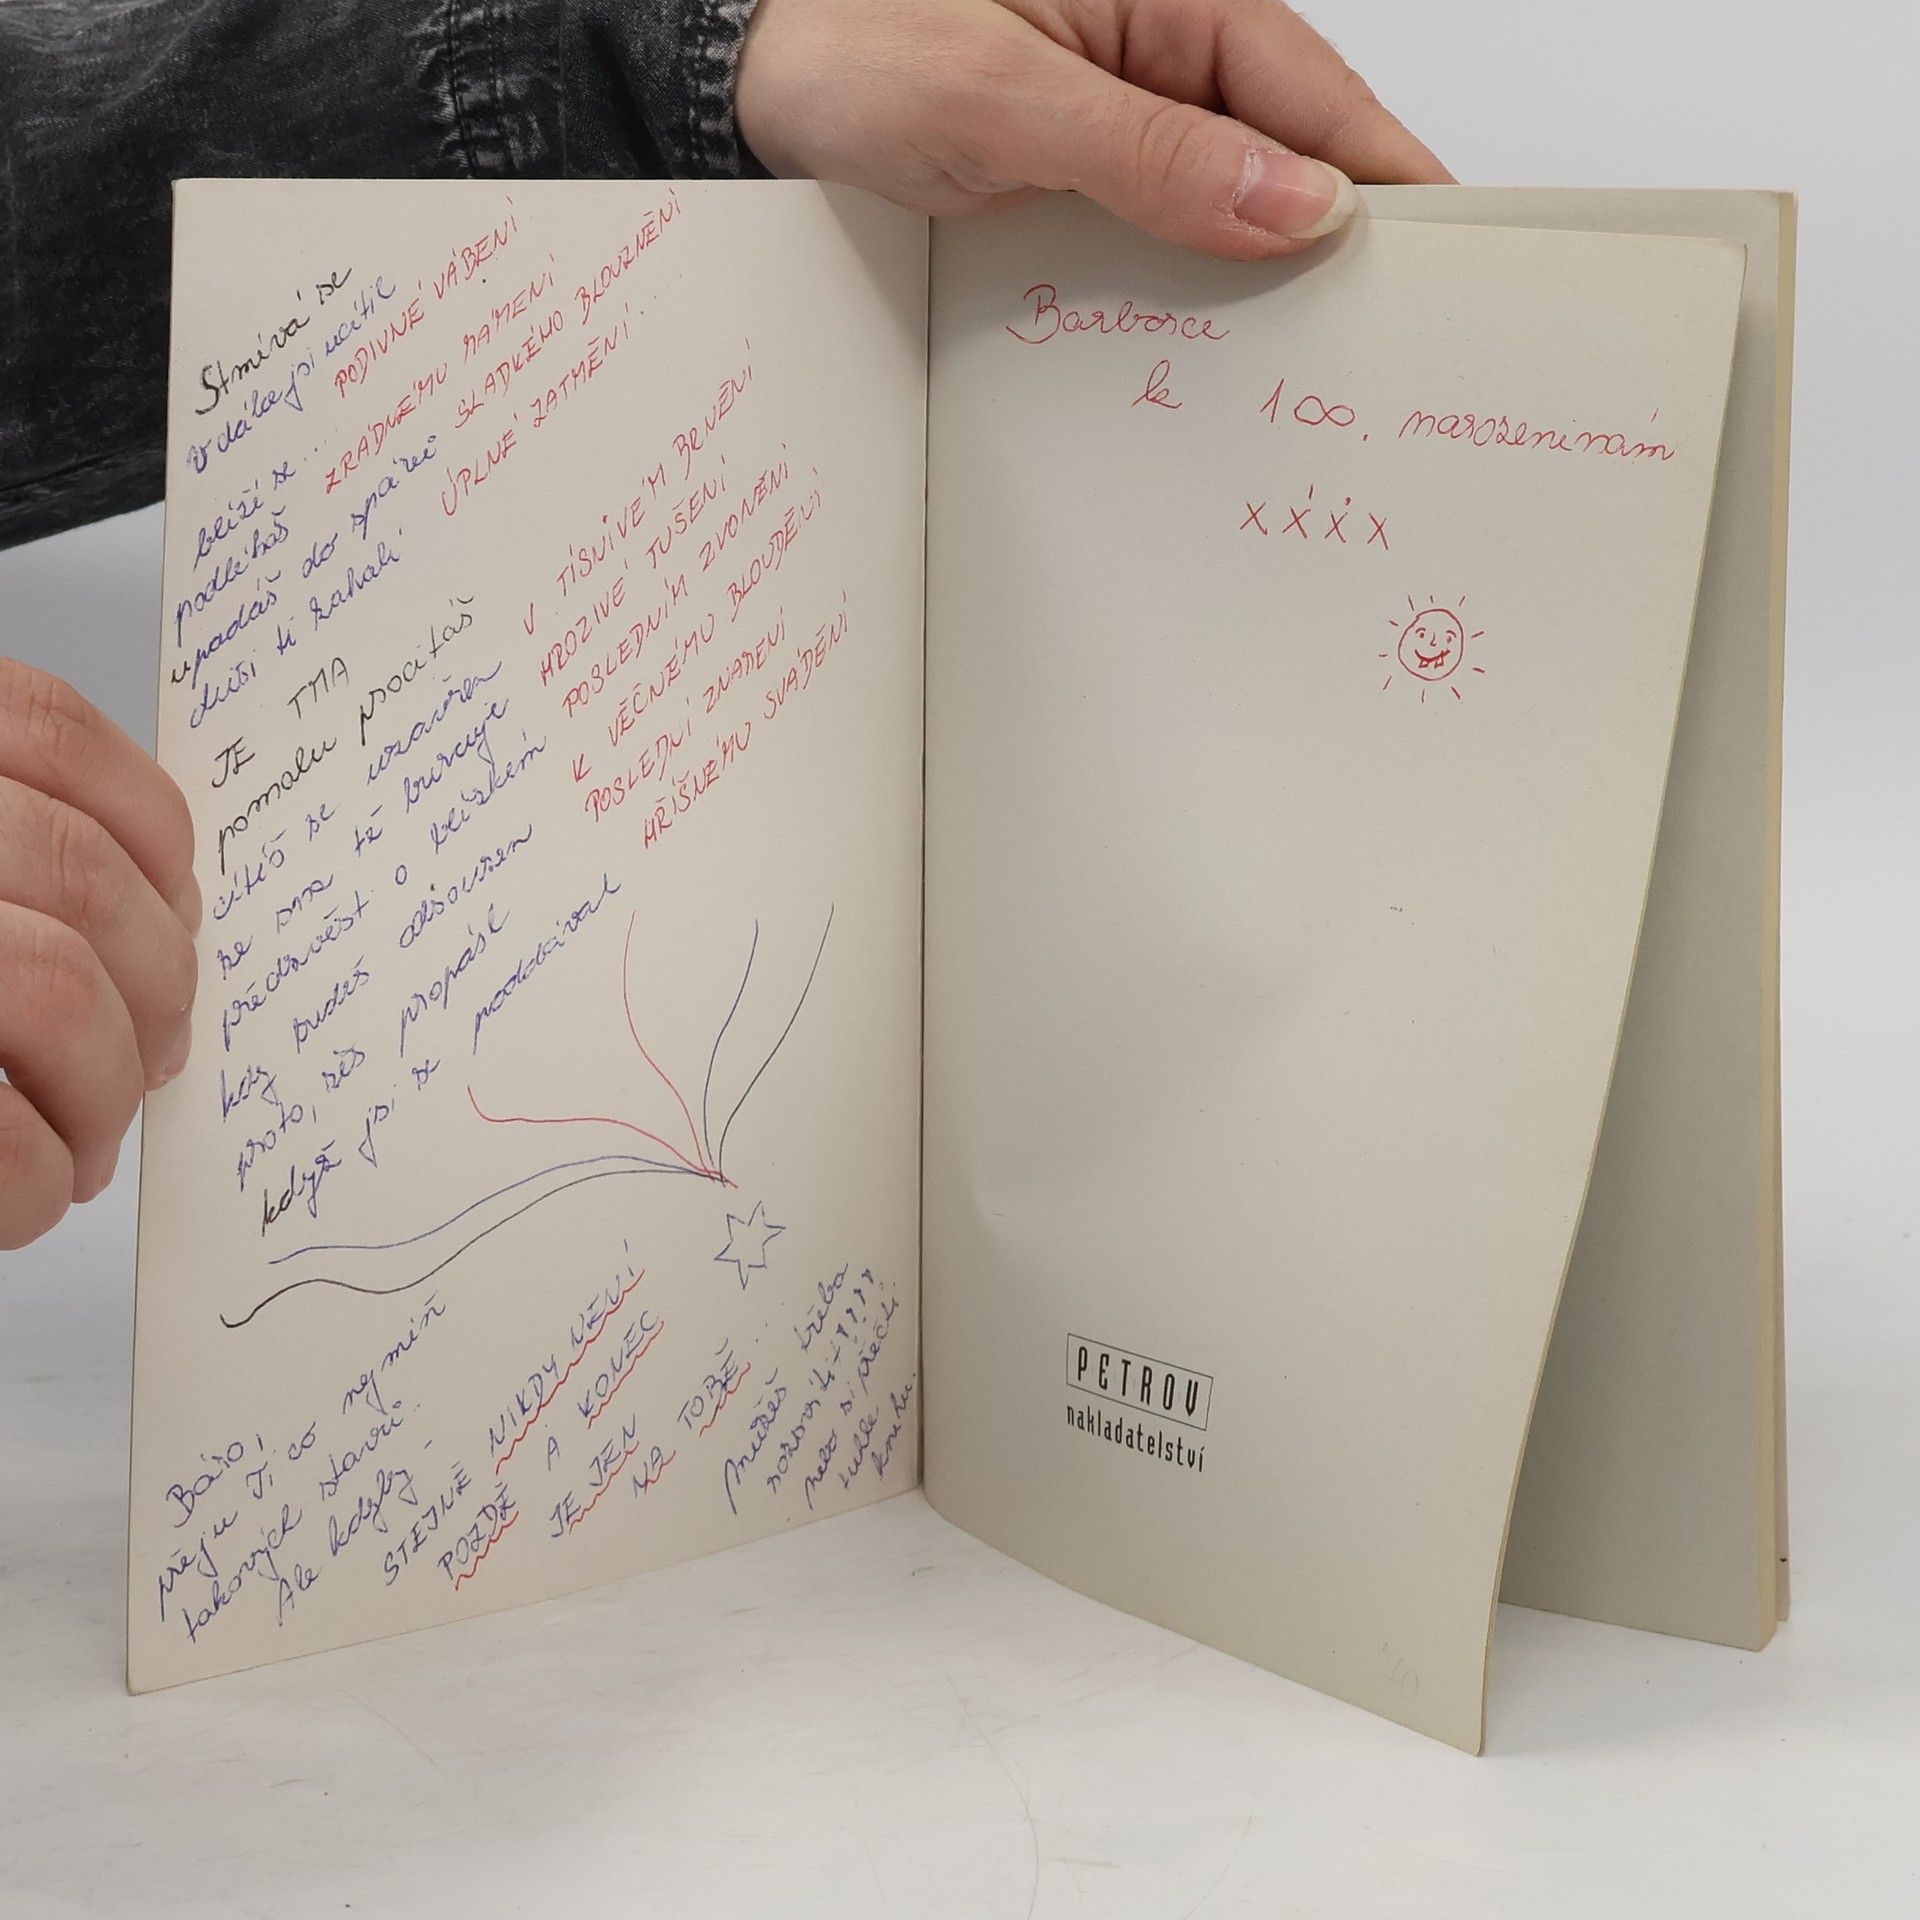 Stmívá se
v dálce jsi ucítil PODIVNÉ VÁBENÍ
blíží se...
podléháš ZRÁDNÉMU MÁMENÍ
upadáš do spárů SLADKÉHO BLOUZNĚNÍ
duši ti zahalí ÚPLNÉ ZATMĚNÍ...
JE TMA
pomalu procitáš
cítíš se uzavřen V TÍSNIVÉM BRNĚNÍ
ze sna tě burcuje HROZIVÉ TUŠENÍ
předzvěst o blízkém POSLEDNÍM ZVONĚNÍ
kdy budeš odsouzen K VĚČNÉMU BLOUDĚNÍ
proto, žes propásl POSLEDNÍ ZNAMENÍ
když jsi se poddával HŘÍŠNÉMU SVÁDĚNÍ
Báro,
přeju Ti co nejmíň
takových stavů..
Ale kdyby -
STEJNĚ NIKDY NENÍ
POZDĚ A KONEC
JE JEN
NA TOBĚ...
Můžeš třeba
nebo si přečti
tuhle
knihu.
Barborce
k 100. narozeninám
x x x x
PETROV
nakladatelství
70